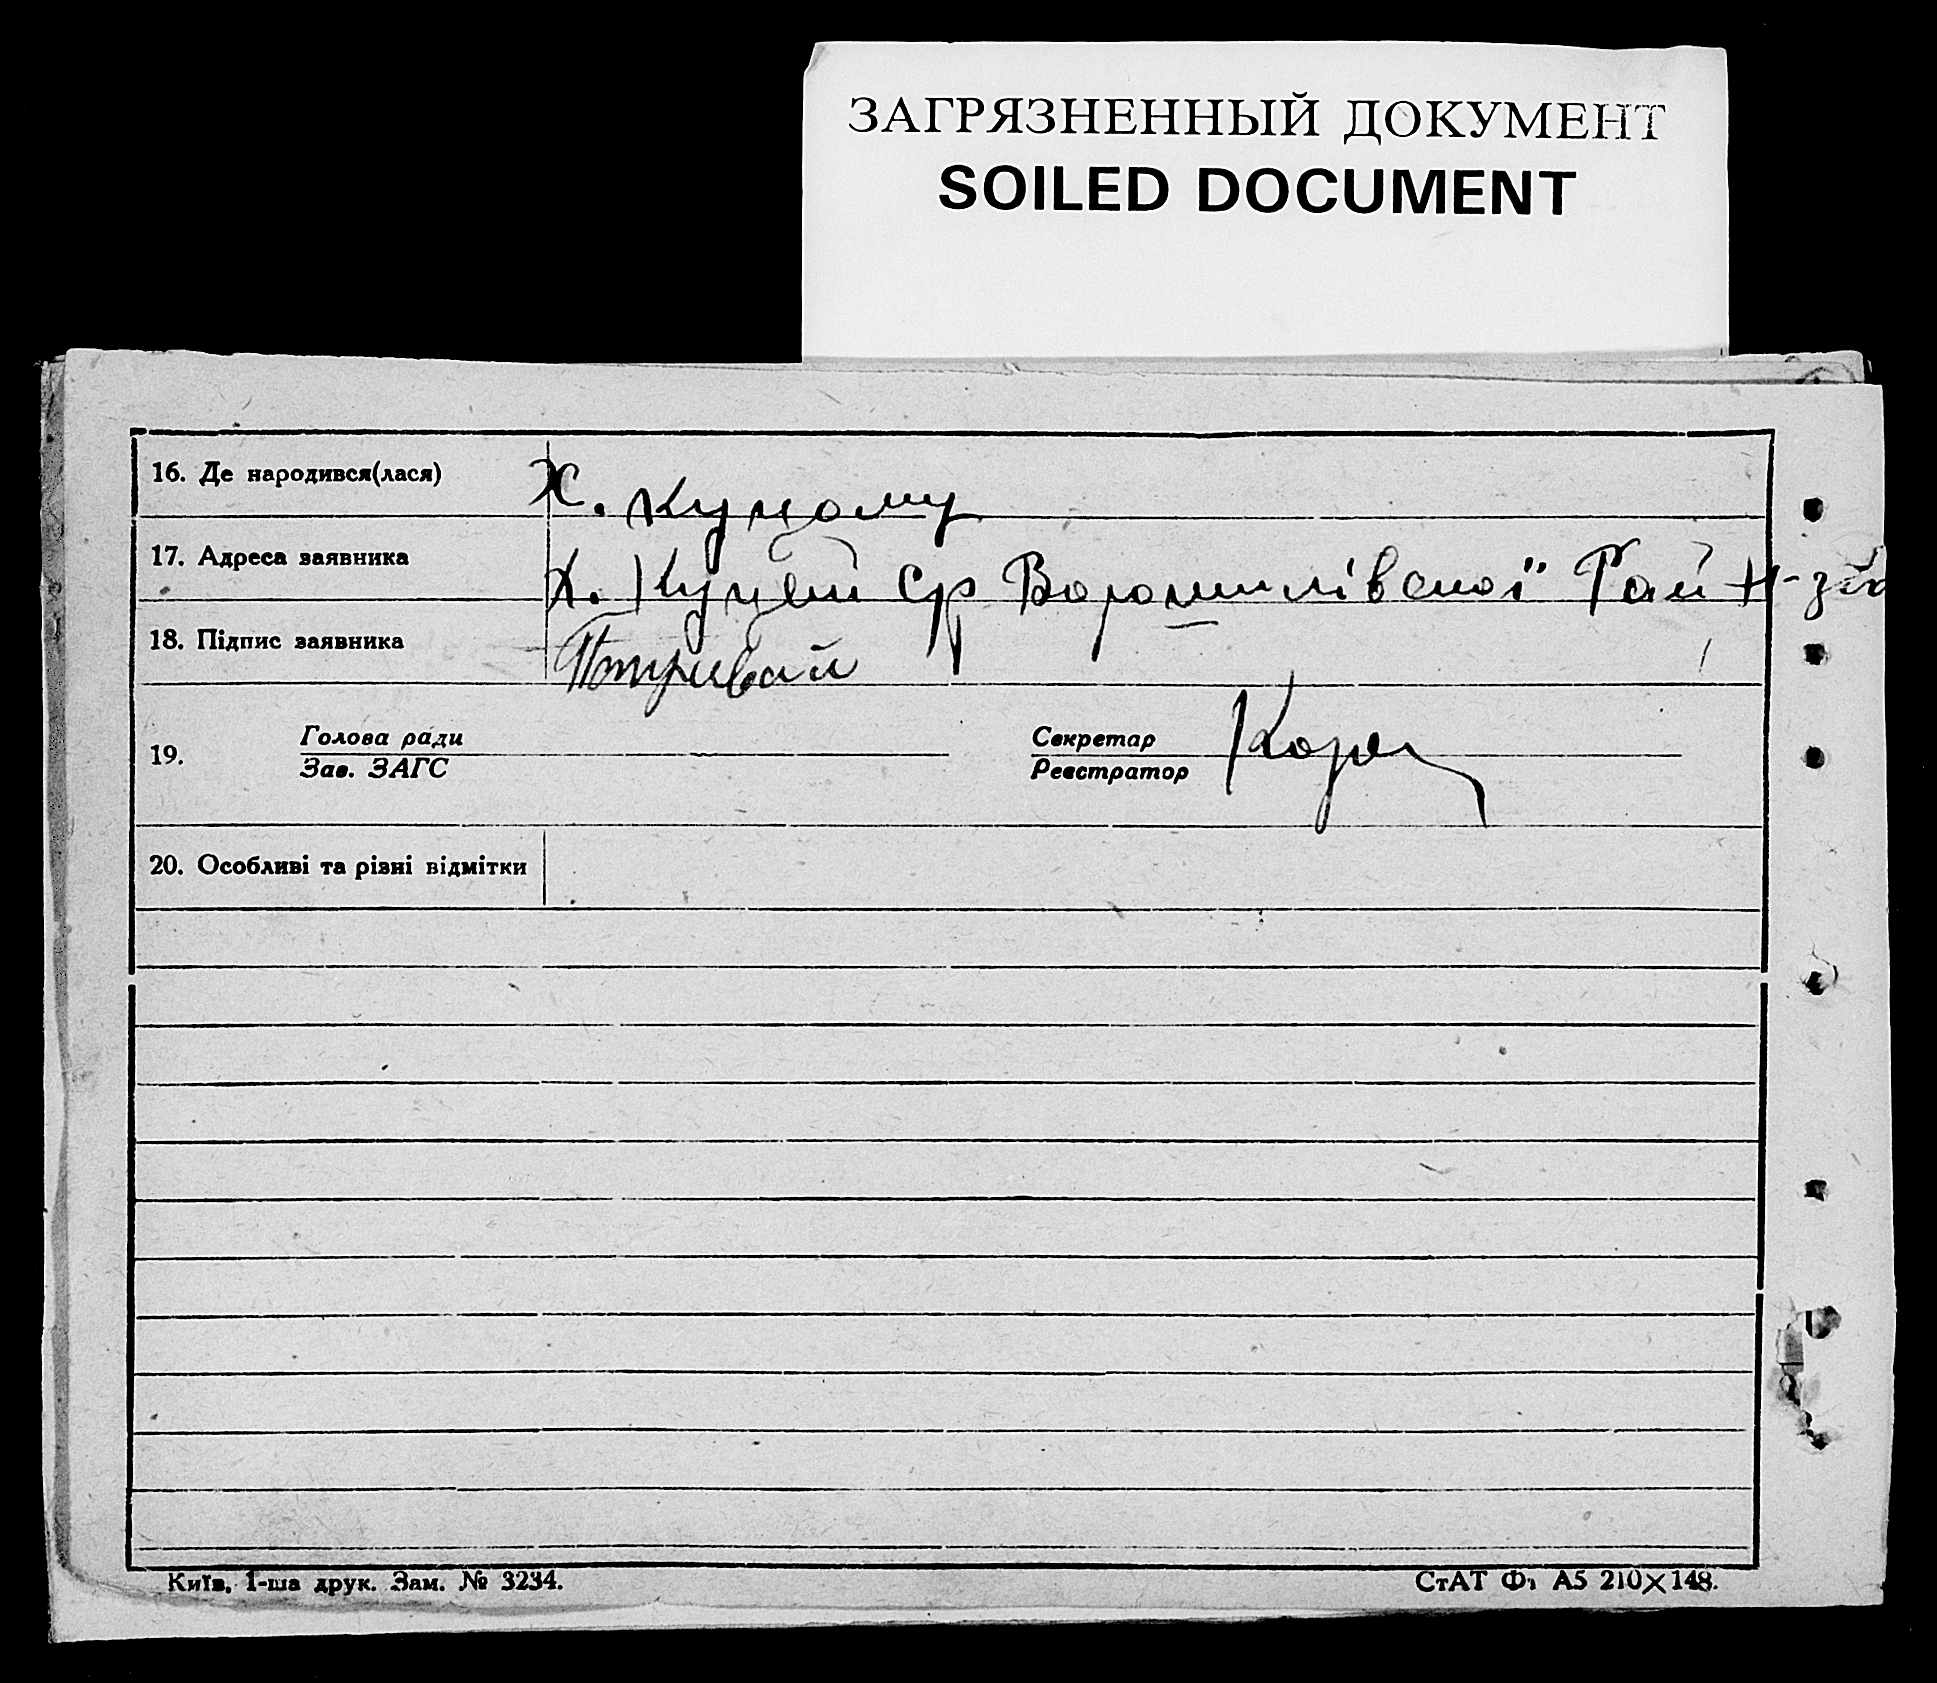 ЗАГРЯЗНЕННЫЙ ДОКУМЕНТ
SOILED DOCUMENT
16. Де народився(лася) Х. Куцому
17. Адреса заявника Х. Куций Ср Ворошилівської Рай
18. Підпис заявника
19. Голова ради Секретар
Зав. ЗАГС Реєстратор
20. Особливі та різні відмітки
Київ, 1-ша друк. Зам. № 3234. СтАТ Ф1 А5 210×148.